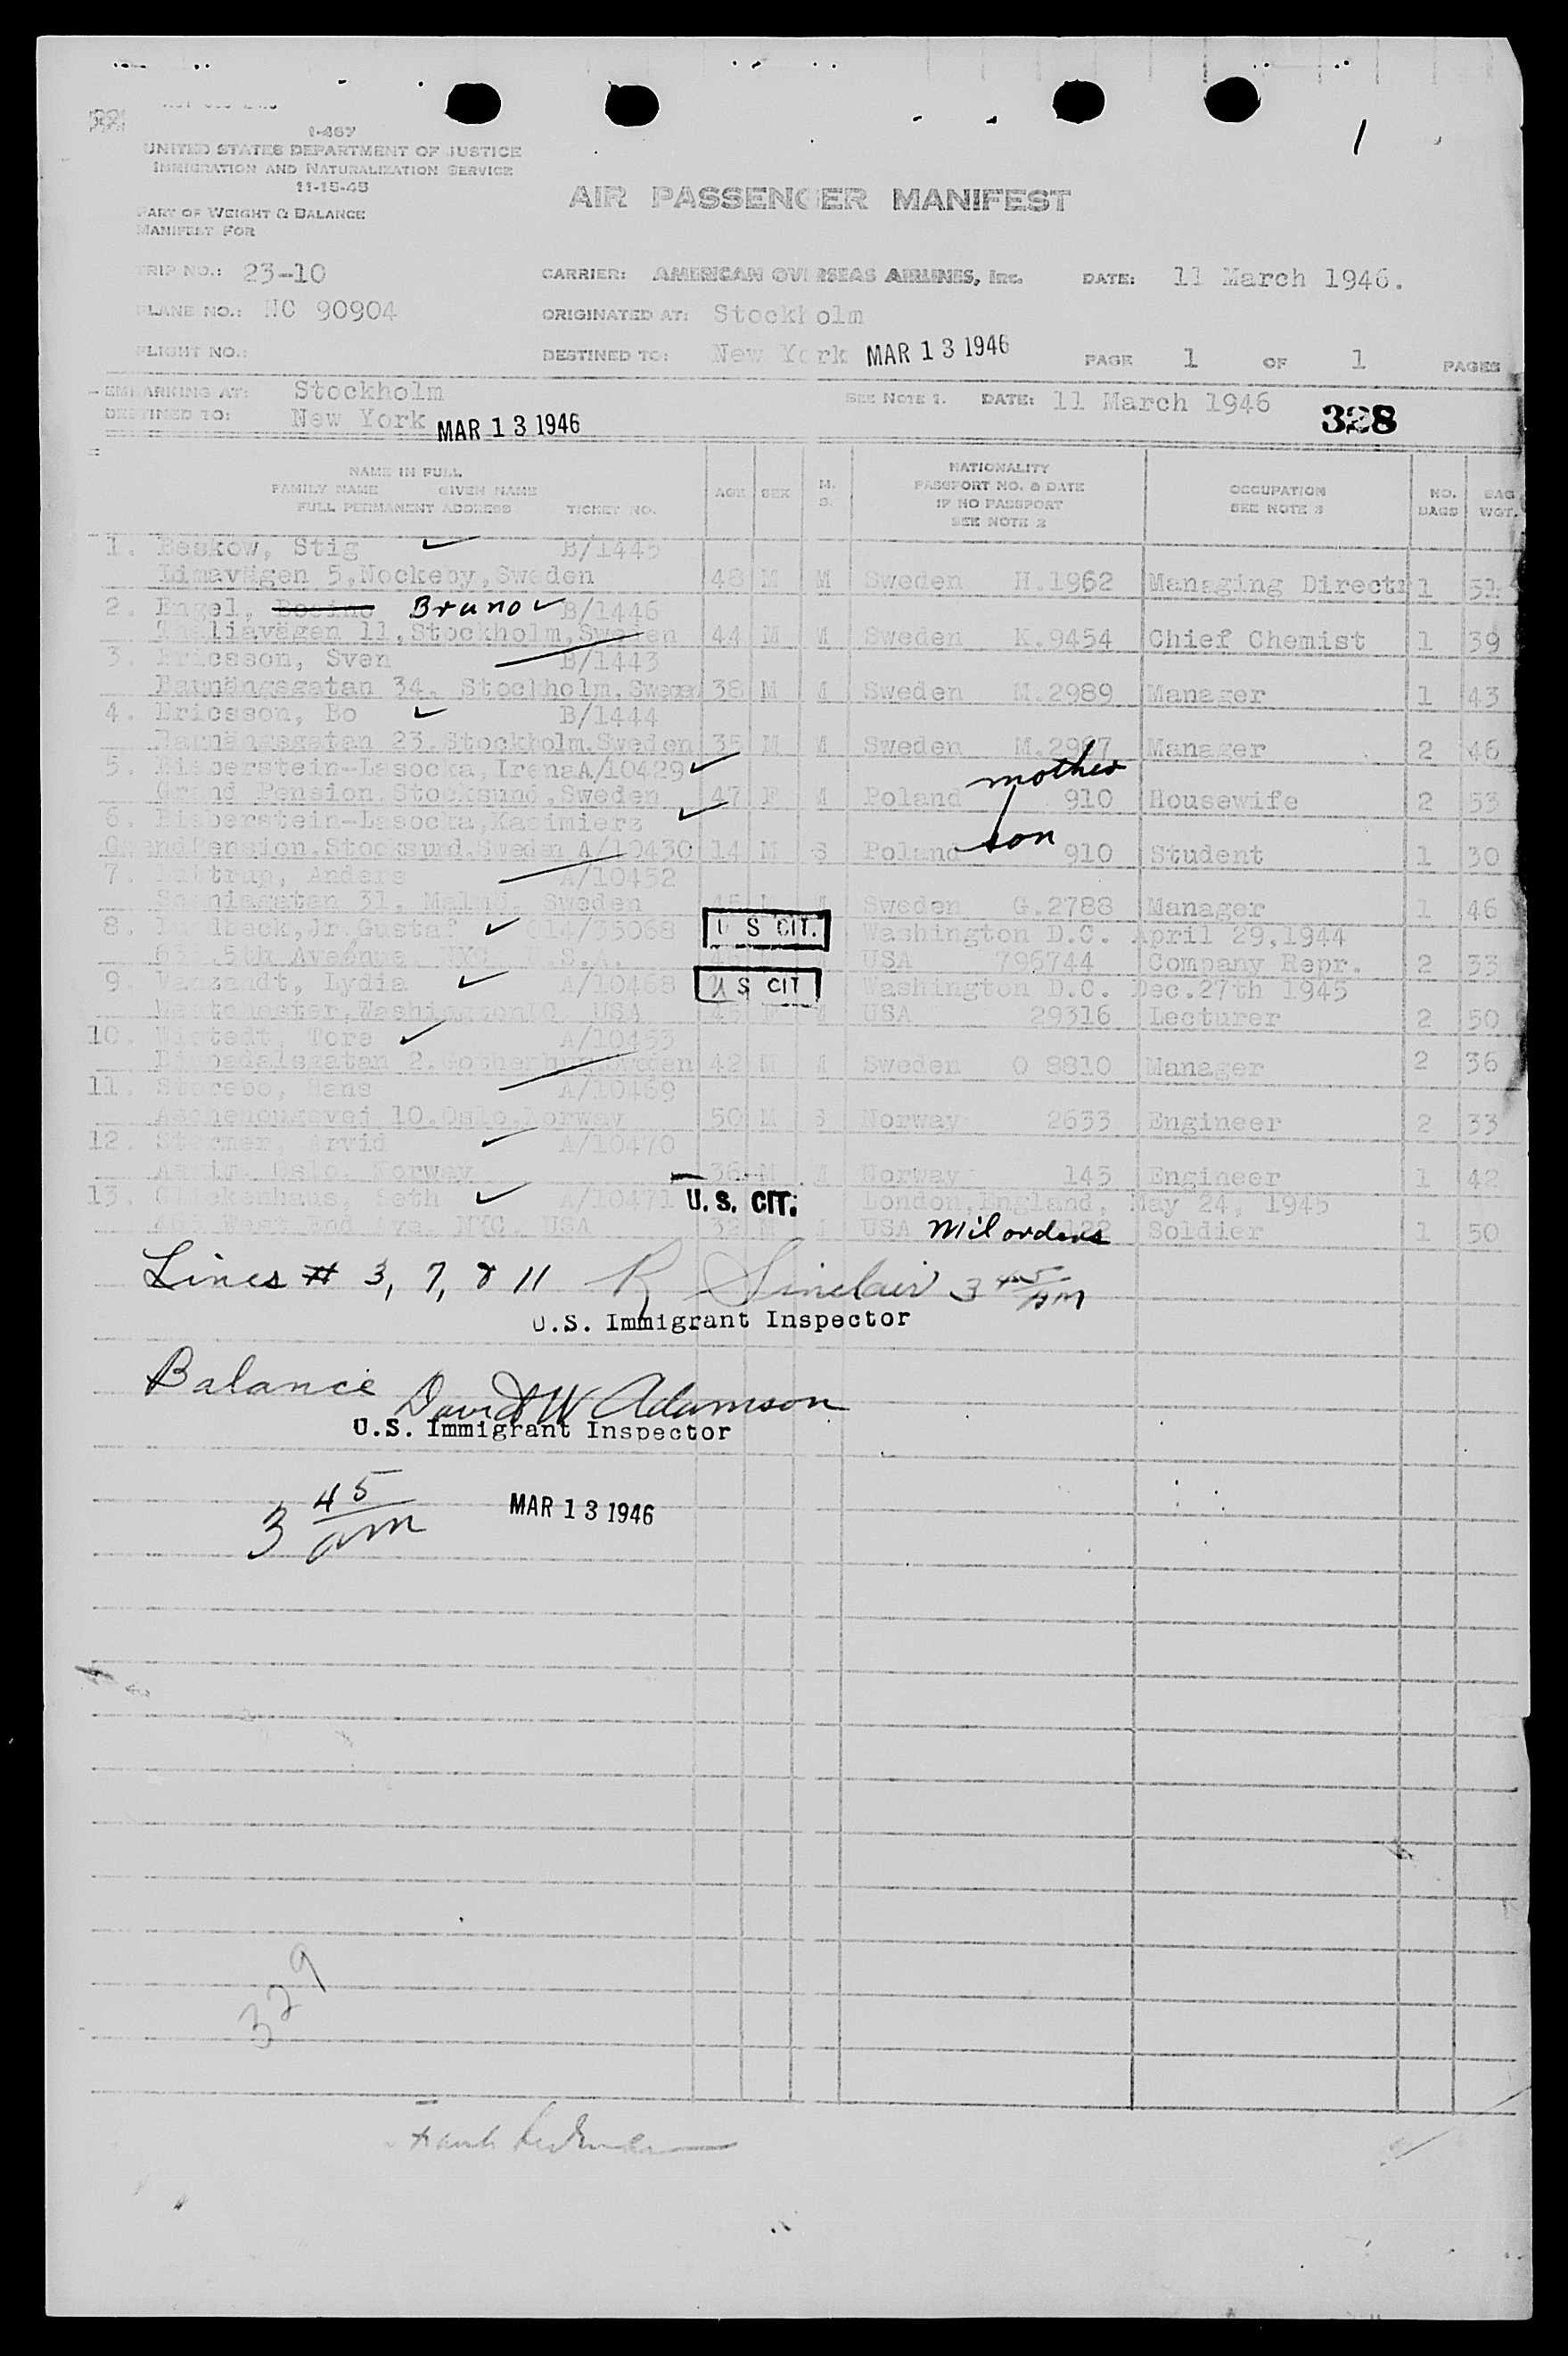 I-467
UNITED STATES DEPARTMENT OF JUSTICE
IMMIGRATION AND NATURALIZATION SERVICE
11-15-45
AIR PASSENGER MANIFEST
PART OF WEIGHT & BALANCE
MANIFEST FOR
TRIP NO.: 23-10 CARRIER: AMERICAN OVERSEAS AIRLINES, Inc. DATE: 11 March 1946.
PLANE NO.: NC 90904 ORIGINATED AT: Stockholm
FLIGHT NO.: DESTINED TO: New York MAR 13 1946 PAGE 1 OF 1 PAGES
EMBARKING AT: Stockholm SEE NOTE 1. DATE: 11 March 1946
DESTINED TO: New York MAR 13 1946 328
NAME IN FULL
FAMILY NAME GIVEN NAME
FULL PERMANENT ADDRESS TICKET NO. AGE SEX M. S. NATIONALITY PASSPORT NO. & DATE IF NO PASSPORT SEE NOTE 2 OCCUPATION SEE NOTE 3 NO. BAGS BAG WGT.
1. Beskow, Stig B/1445
Limavägen 5, Nockeby, Sweden 48 M M Sweden H.1962 Managing Directr 1 51
2. Engel, Bruno B/1446
Thaliavägen 11, Stockholm, Sweden 44 M M Sweden K.9454 Chief Chemist 1 39
3. Ericsson, Sven B/1443
Barnängsgatan 34. Stockholm. Sweden 38 M M Sweden M.2989 Manager 1 43
4. Ericsson, Bo B/1444
Barnängsgatan 23. Stockholm. Sweden 35 M M Sweden M.2967 Manager 2 46
5. Bieberstein-Lasocka, Irena A/10429 mother
Grand Pension. Stocksund, Sweden 47 F M Poland 910 Housewife 2 53
6. Bieberstein-Lasocka, Kasimierz son
GrandPension Stocksund. Sweden A/10430 14 M S Poland 910 Student 1 30
7. Anders A/10452
31, Malmö, Sweden 45 M Sweden G.2788 Manager 1 46
8. Jr. Gustaf 014/35068 U S CIT. Washington D.C. April 29, 1944
5th Avenue. NYC U.S.A. USA 796744 Company Repr. 2 33
9. Vanzandt, Lydia A/10468 U S CIT Washington D.C. Dec. 27th 1945
Westchester, Washington DC. USA 45 F M USA 29316 Lecturer 2 50
10. Tore A/10453
2. Gothenburg Sweden 42 M M Sweden O 8810 Manager 2 36
11. Storebo, Hans A/10469
Aschehougsvej 10. Oslo. Norway 50 M S Norway 2633 Engineer 2 33
12. Arvid A/10470
Oslo. Norway 36 M M Norway 145 Engineer 1 42
13. Glickenhaus, Seth A/10471 U. S. CIT. London, England, May 24, 1945
West End Ave. NYC. USA 32 M M USA Mil orders Soldier 1 50
Lines # 3, 7, & 11 R Sinclair 3 45 AM
U.S. Immigrant Inspector
Balance David W Adamson
U.S. Immigrant Inspector
3 45 am MAR 13 1946
329